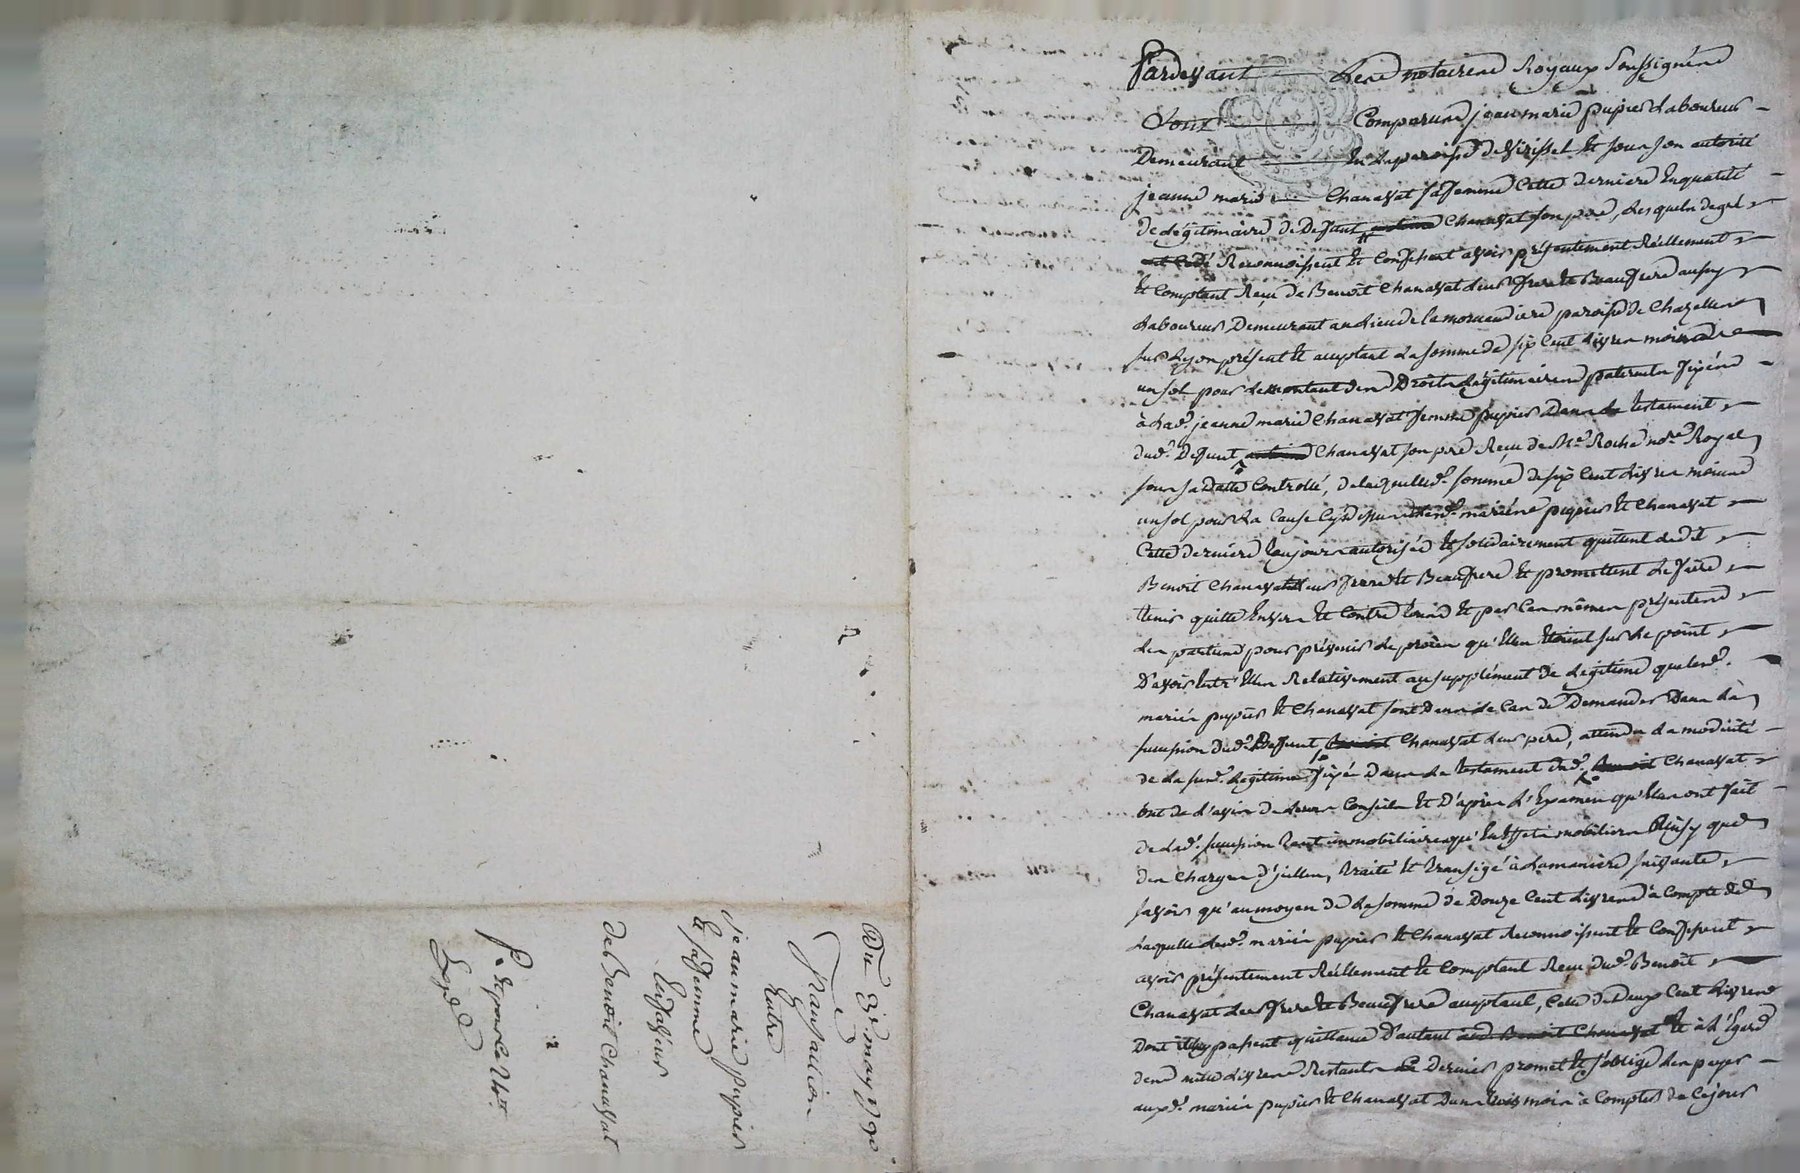 Pardevant Les notaires Royaux Soussignés
Sont Comparus jean marie pupier Laboureur
Demeurant En La paroisse de Virissel Et sous son autorité
jeanne marie Chanavat sa femme Cette derniere En qualité
de Légitimaire de Deffunt Chanavat son pere, Lesquels de gré
Reconnoissent Et Confessent avoir présentement Réellement
Et Comptant Reçu de Benoit Chanavat Leur frere Et Beaufrere aussy
Laboureur Demeurant au Lieu de la paroisse de Chazelles
sur Lyon présent Et acceptant La somme de six Cent Livres moins
un sol pour Le montant des Droits Légitimaires paternels fixés
à Lad. jeanne marie Chanavat femme pupier Dans Le testament
dud. Deffunt Chanavat son pere Reçu de Me. Roche nore. Royal
sous sa Datte Controllé, de laquelle d. somme de six Cent Livres moins
un sol pour La Cause Cy dessus Lesd. mariés pupier Et Chanavat
Cette derniere toujours autorisée Et solidairement quittent Led.
Benoit Chanavat Leur frere Et Beaufrere Et promettent Le faire
tenir quitte Envers Et Contre tous Et par Ces mêmes présentes
Les parties pour prévenir Le procès qu'Elles Etoient sur Le point
D'avoir Entr'Elles Relativement au supplément de Légitime que Lesd.
mariés pupier Et Chanavat sont Dans Le Cas de Demander Dans La
succession dud. Deffunt Chanavat Leur pere, attendu La modicité
de La susd. Légitime fixée Dans Le testament dud. Chanavat
ont de L'avis de Leurs Conseils Et D'après L'Examen qu'Elles ont fait
de Lad. succession tant immobiliaire qu'En Effets mobiliers Ainsy que
des Charges d'jcelles, traité Et transigé à La maniere suivante,
savoir qu'au moyen de La somme de Douze Cent Livres à Compte de
Laquelle Lesd. mariés pupier Et Chanavat Reconnoissent Et Confessent
avoir présentement Réellement Et Comptant Reçu dud. Benoit
Chanavat Leur frere Et Beaufrere acceptant, Celle de Deux Cent Livres
Dont ils passent quittance D'autant Et à L'Egard
des mille Livres Restants Ce Dernier promet Et s'oblige Les payer
auxd. mariés pupier Et Chanavat Dans trois mois à Compter de Ce jour
Du 3e. may 1790
Transaction
Entre
jean marie pupier
Et sa femme
En faveur
de Benoit Chanavat